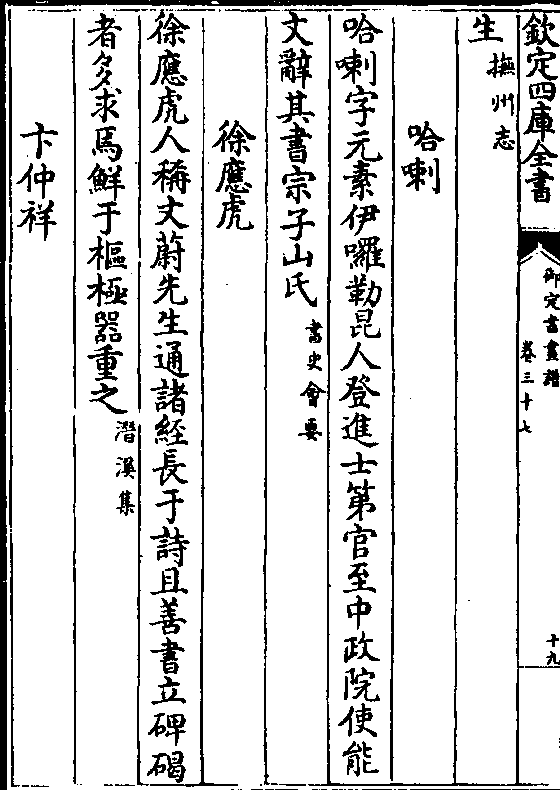 欽定四庫全書
御定書畫譜
卷三十七
十九
生撫州志
哈喇
哈喇字元素伊囉勒昆人登進士第官至中政院使能
文辭其書宗子山氏書史會要
徐應虎
徐應虎人稱文蔚先生通諸經長于詩且善書立碑碣
者多求焉鮮于樞極器重之潛溪集
卞仲祥